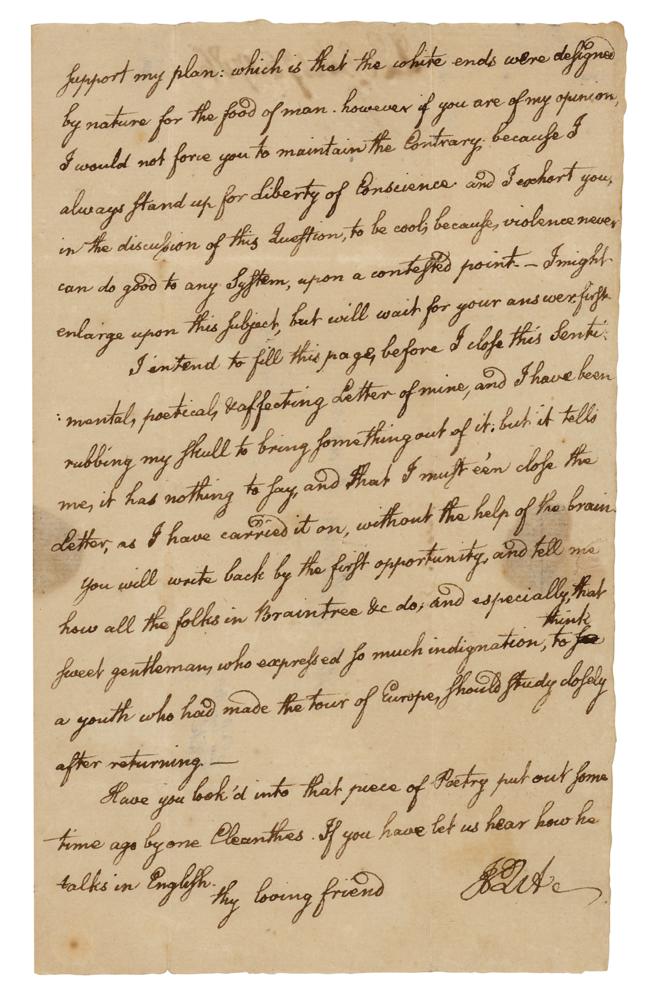 support my plan: which is that the white ends were designed
by nature for the food of man. however if you are of my opinion,
I would not force you to maintain the Contrary; because I
always stand up for Liberty of Conscience and I exhort you,
in the discussion of this Question, to be cool, because, violence never
can do good to any System, upon a contested point — I might
enlarge upon this subject, but will wait for your answer first.
I intend to fill this page, before I close this Senti:
:mental, poetical, & affecting Letter of mine, and I have been
rubbing my skull to bring something out of it; but it tells
me, it has nothing to say, and that I must e'en close the
Letter, as I have carried it on, without the help of the brain.
You will write back by the first opportunity, and tell me
how all the folks in Braintree &c do; and especially, that
sweet gentleman, who expressed so much indignation, to think
a youth who had made the tour of Europe, should study closely
after returning. —
Have you look'd into that piece of Poetry put out some
time ago by one Cleanthes. If you have let us hear how he
talks in English.
thy loving friend
JQA